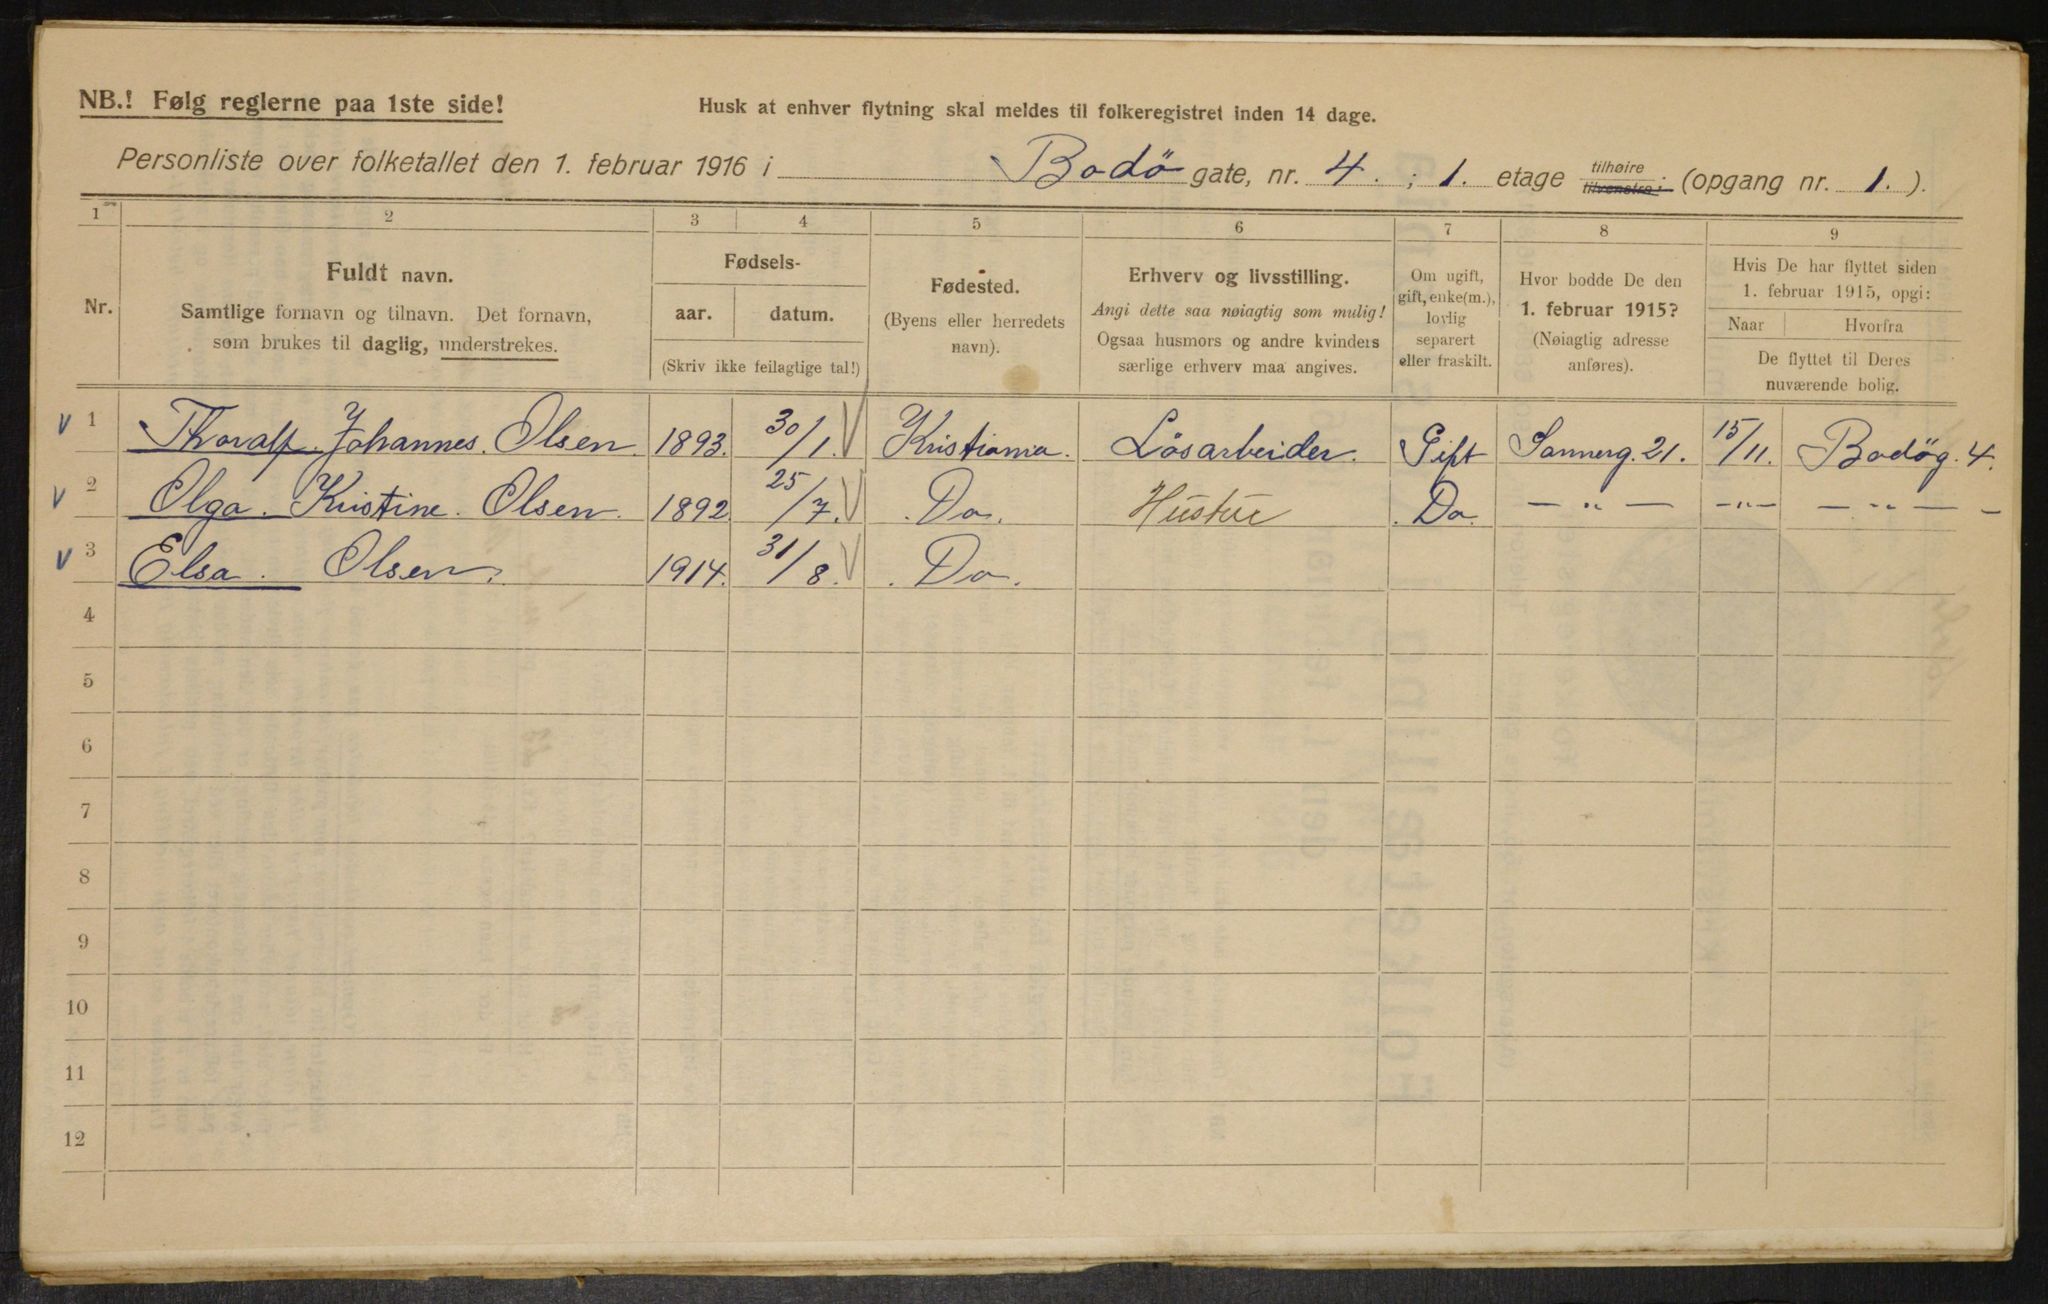 NB.! Følg reglerne paa 1ste side!
Husk at enhver flytning skal meldes til folkeregistret inden 14 dage.
Personliste over folketallet den 1. februar 1916 i Bodö gate, nr. 4. ; 1. etage tilhøire tilvenstre: (opgang nr. 1. ).
1 2 3 4 5 6 7 8 9
Nr.
Fuldt navn.
Samtlige fornavn og tilnavn. Det fornavn,
som brukes til daglig, understrekes.
Fødsels-
aar. datum.
(Skriv ikke feilagtige tal!)
Fødested.
(Byens eller herredets
navn).
Erhverv og livsstilling.
Angi dette saa nøiagtig som mulig!
Ogsaa husmors og andre kvinders
særlige erhverv maa angives.
Om ugift,
gift, enke(m.),
lovlig
separert
eller fraskilt.
Hvor bodde De den
1. februar 1915?
(Nøiagtig adresse
anføres).
Hvis De har flyttet siden
1. februar 1915, opgi:
Naar Hvorfra
De flyttet til Deres
nuværende bolig.
V 1 Thoralf. Johannes. Olsen 1893. 30/1. Kristiania. Lösarbeider. Gift Sannerg. 21. 15/11. Bodög. 4.
V 2 Olga. Kristine. Olsen. 1892. 25/7. Do. Hustru Do. — " — — " — — " — —
V 3 Elsa. Olsen. 1914. 31/8. Do.
4
5
6
7
8
9
10
11
12